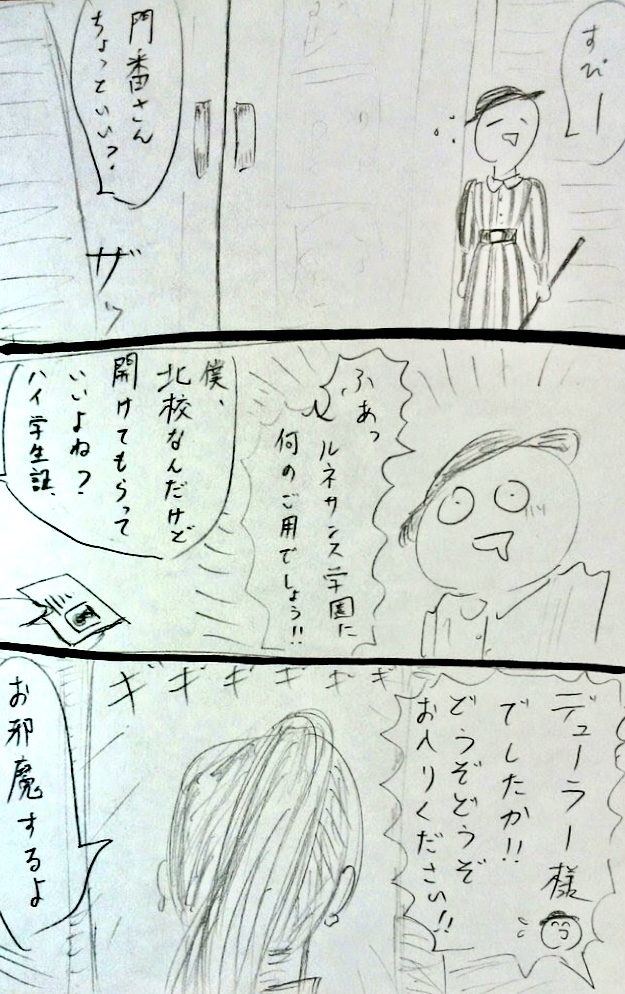 すぴー
門番さん
ちょっといい?
ザッ
ふあっ
ルネサンス学園に
何のご用でしょう!!
僕、
北校なんだけど
開けてもらって
いいよね?
ハイ学生証、
デューラー様
でしたか!!
どうぞどうぞ
お入りください!!
ギギギギギギ
お邪魔するよ